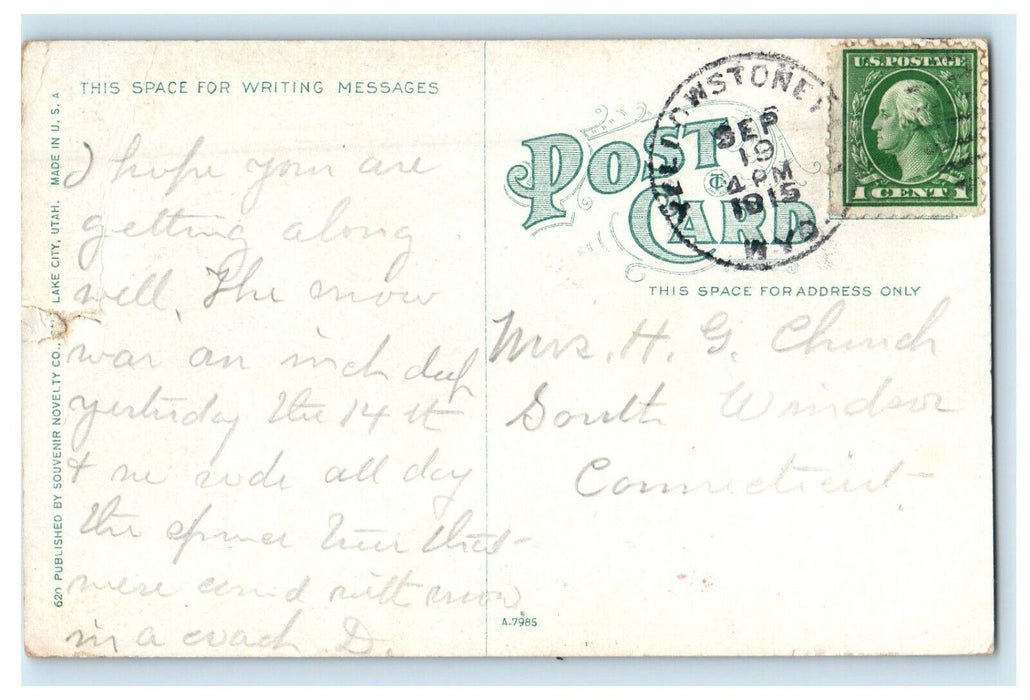 THIS SPACE FOR WRITING MESSAGES
I hope you are
getting along
well. The snow
was an inch deep
yesterday the 14th
& we rode all day
the spruce trees that
were cov'd with snow
in a coach D.
620 PUBLISHED BY SOUVENIR NOVELTY CO., LAKE CITY, UTAH. MADE IN U.S.A
POST CARD
CT
YELLOWSTONE
SEP
19
4 PM
1915
WYO
U.S. POSTAGE
1 CENT 1
THIS SPACE FOR ADDRESS ONLY
Mrs. H. G. Church
South Windsor
Connecticut
A-7985